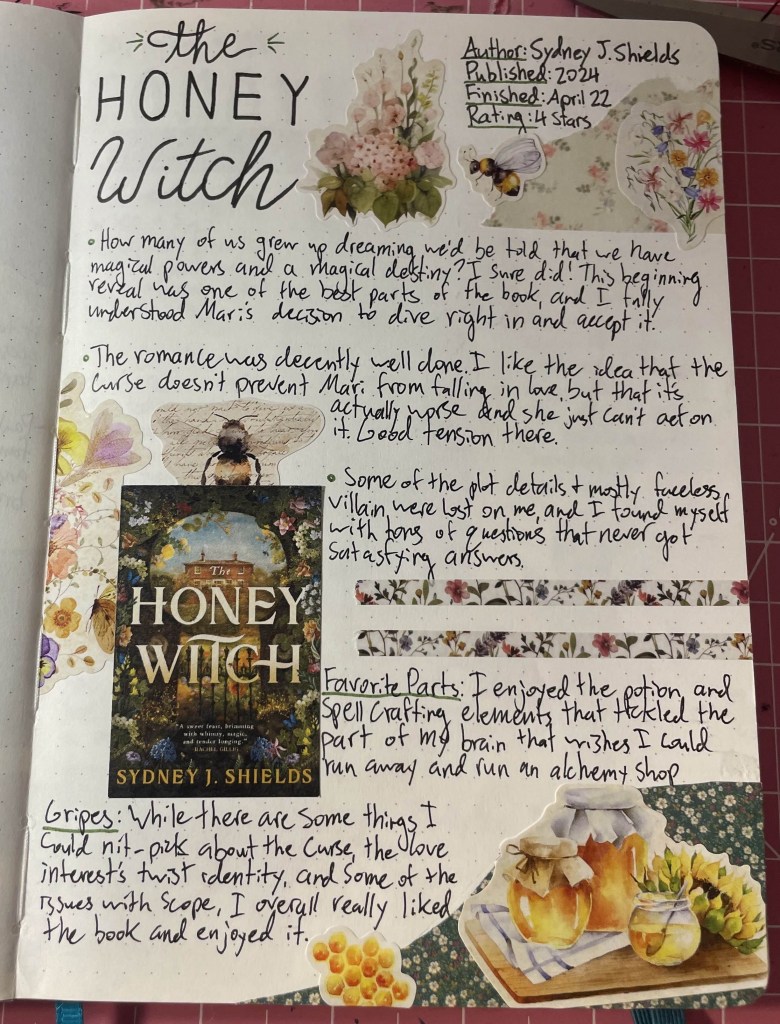 the
HONEY
Witch
Author: Sydney J. Shields
Published: 2024
Finished: April 22
Rating: 4 Stars
• How many of us grew up dreaming we'd be told that we have
magical powers and a magical destiny? I sure did! This beginning
reveal was one of the best parts of the book, and I fully
understood Mari's decision to dive right in and accept it.
• The romance was decently well done. I like the idea that the
curse doesn't prevent Mari from falling in love, but that it's
actually worse and she just can't act on
it. Good tension there.
• Some of the plot details + mostly faceless
villain, were lost on me, and I found myself
with tons of questions that never got
satiastying answers.
The
HONEY
WITCH
"A sweet feast, brimming
with whimsy, magic,
and tender longing."
RACHEL GILLIG
SYDNEY J. SHIELDS
Favorite Parts: I enjoyed the potion and
spell crafting elements that tickled the
part of my brain that wishes I could
run away and run an alchemy shop
Gripes: While there are some things I
could nit-pick about the curse, the love
interest's twist identity, and some of the
issues with scope, I overall really liked
the book and enjoyed it.